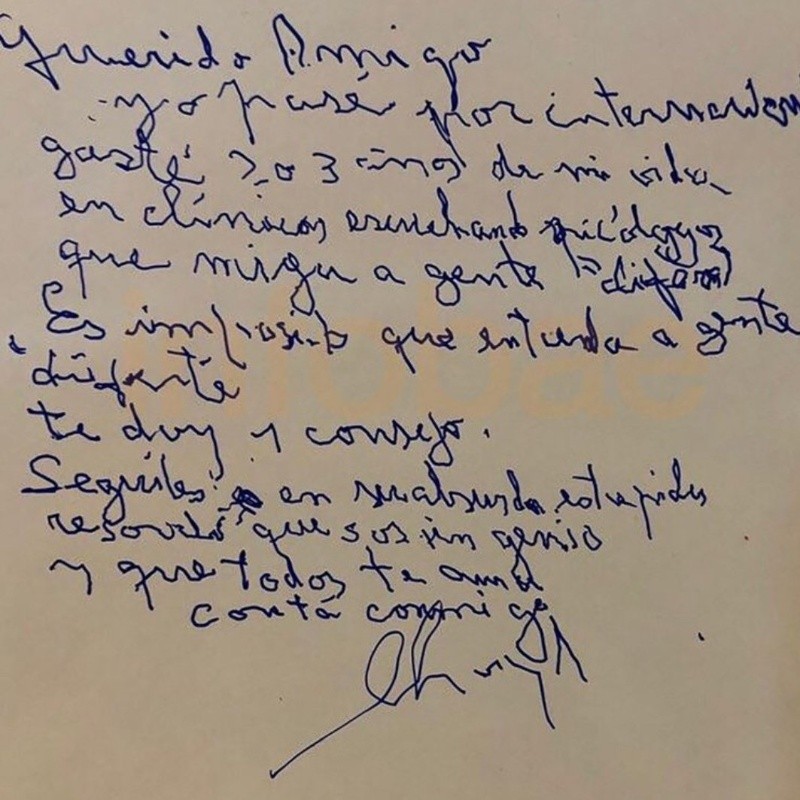 Querido Amigo
yo pasé por internacion
gasté 2 o 3 años de mi vida
en clínicas escuchando psicólogos
que a gente "
Es imposible que entienda a gente
te doy 1 consejo.
Seguiles en su absurda estupidez
que sos un genio
y que todos te aman
contá conmigo
infobae